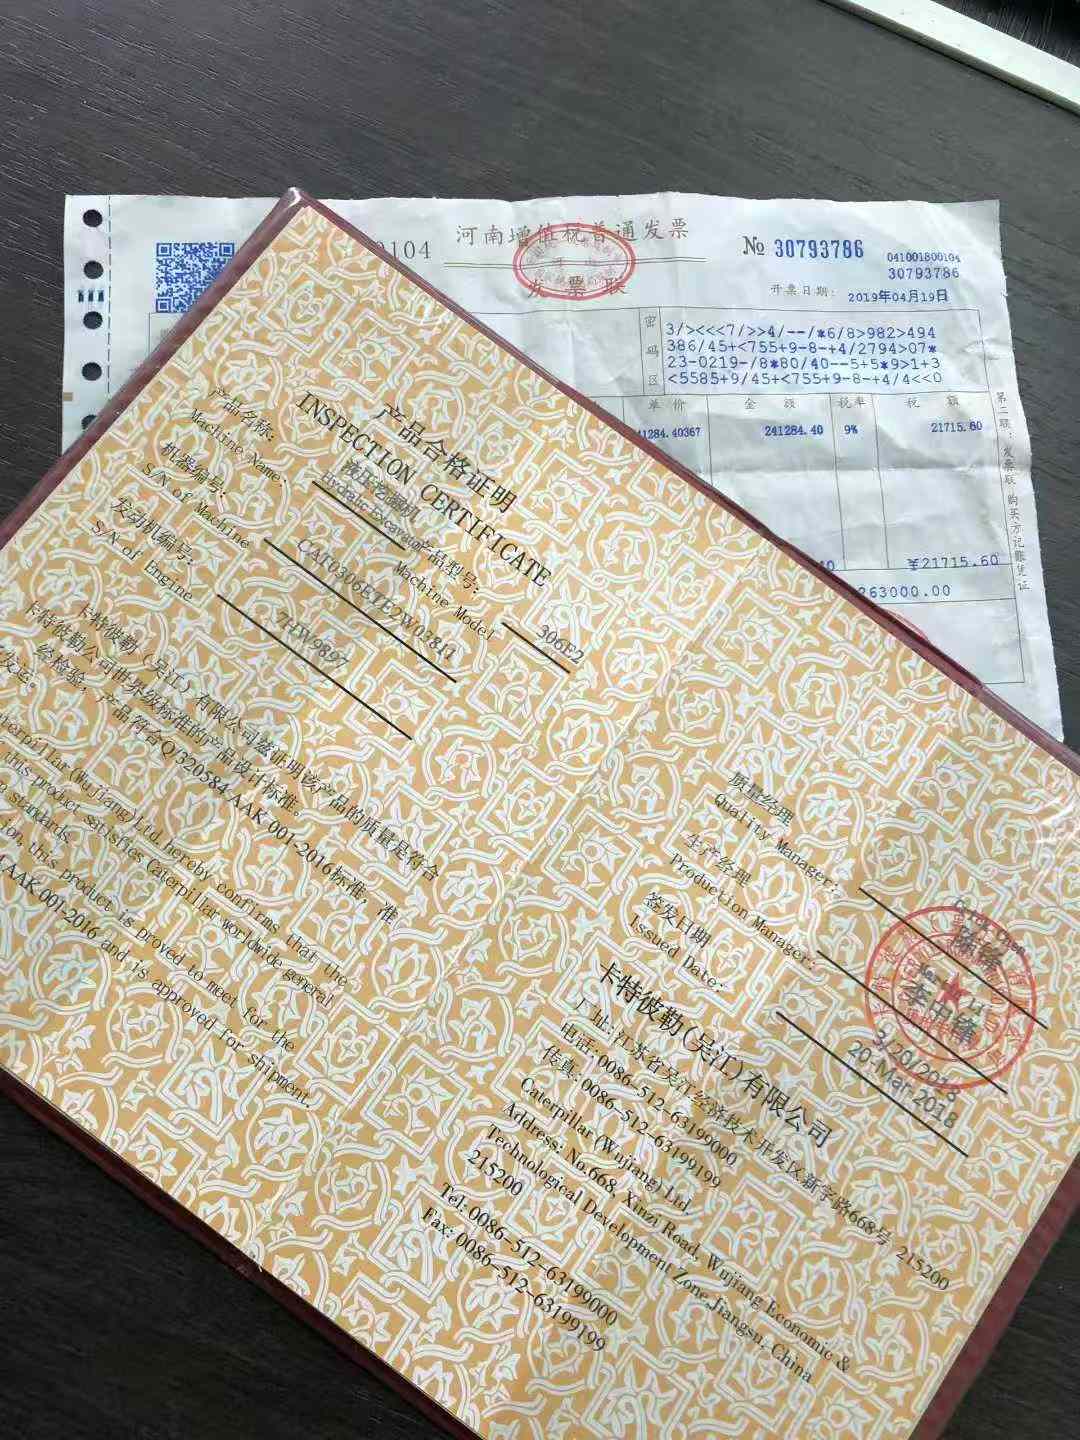 0104
河南增值税普通发票
发票联
№ 30793786
041001800104
30793786
开票日期: 2019年04月19日
密码区
3/><<<7/>>4/--/*6/8>982>494
386/45+<755+9-8-+4/2794>07*
23-0219-/8*80/40--5+5*9>1+3
<5585+9/45+<755+9-8-+4/4<<0
单价 金额 税率 税额
41284.40367 241284.40 9% 21715.60
¥21715.60
263000.00
第二联:发票联 购买方记账凭证
产品合格证明
INSPECTION CERTIFICATE
产品名称: 液压挖掘机 产品型号:
Machine Name: Hydralic Excavator Machine Model 306E2
机器编号:
S/N of Machine CAT0306ETE2W03841
发动机编号:
S/N of Engine 7HW9897
卡特彼勒（吴江）有限公司兹证明该产品的质量是符合
卡特彼勒公司世界级标准的产品设计标准。
经检验，产品符合Q/320584 AAK 001-2016标准，准
发运。
Caterpillar (Wujiang) Ltd. hereby confirms that the
this product satisfies Caterpillar worldwide general
standards.
this product is proved to meet for the
AAK 001-2016 and is approved for shipment.
质量经理
Quality Manager:
生产经理
Production Manager:
李中锋
签发日期
Issued Date:
3/20/2018
20-Mar-2018
卡特彼勒(吴江)有限公司
厂址:江苏省吴江经济技术开发区新字路668号 215200
电话:0086-512-63199000
传真:0086-512-63199199
Caterpillar (Wujiang) Ltd.
Address: No.668, Xinzi Road, Wujiang Economic &
Technological Development Zone,Jiangsu, China
215200
Tel: 0086-512-63199000
Fax: 0086-512-63199199